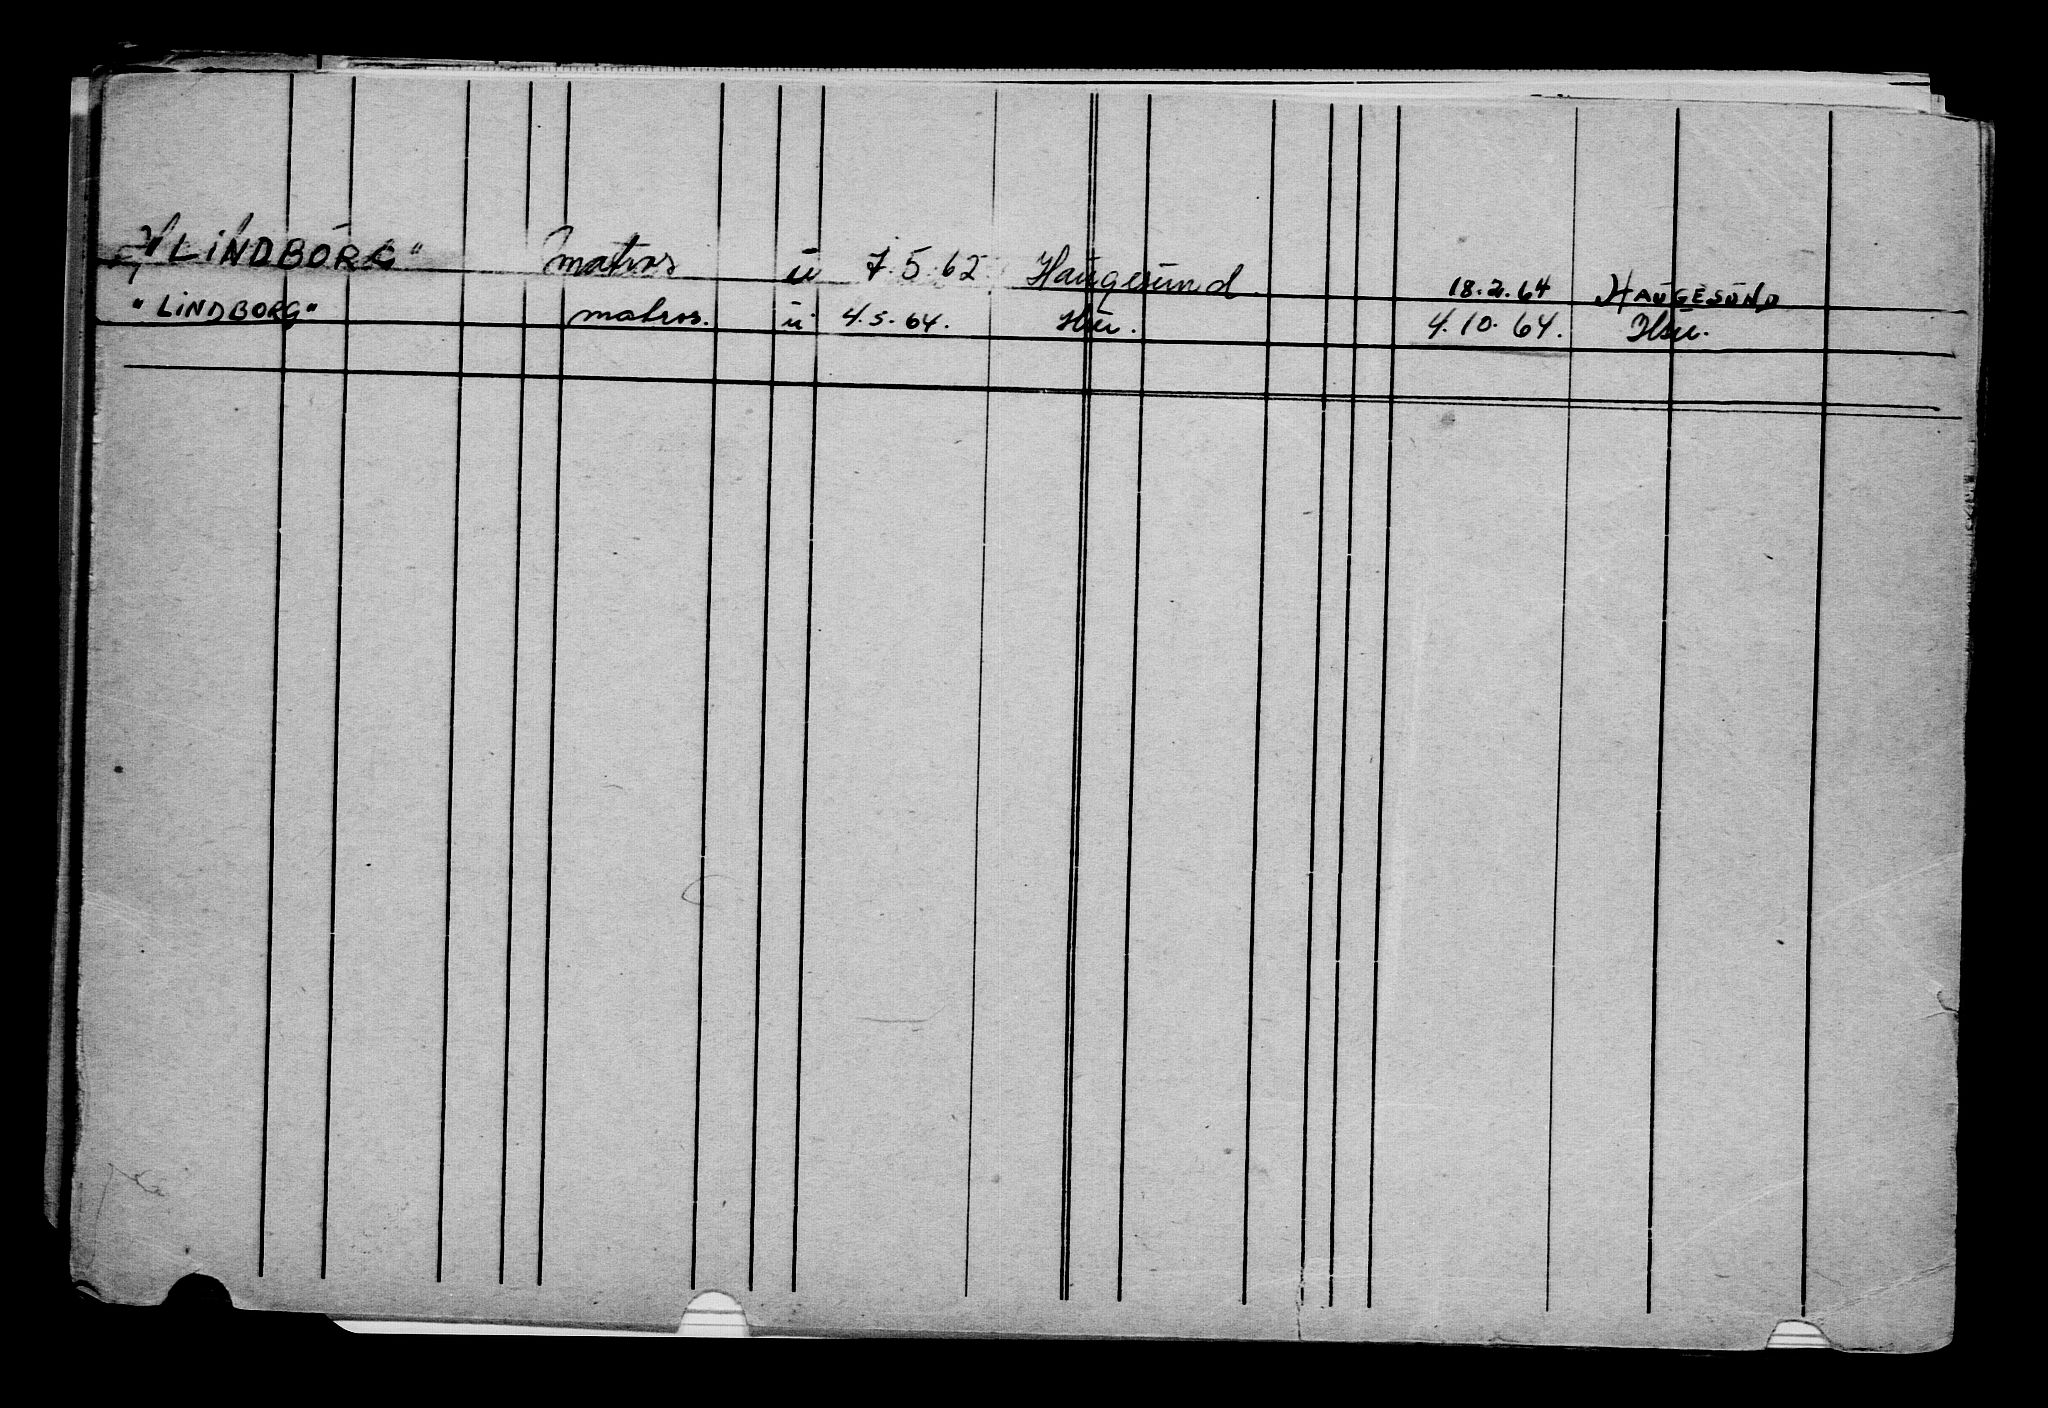 "LINDBORG" matros u 7.5.62 Haugesund 18.2.64 HAUGESUND
"LINDBORG" matros. u 4.5.64. Hau. 4.10.64. Hau.